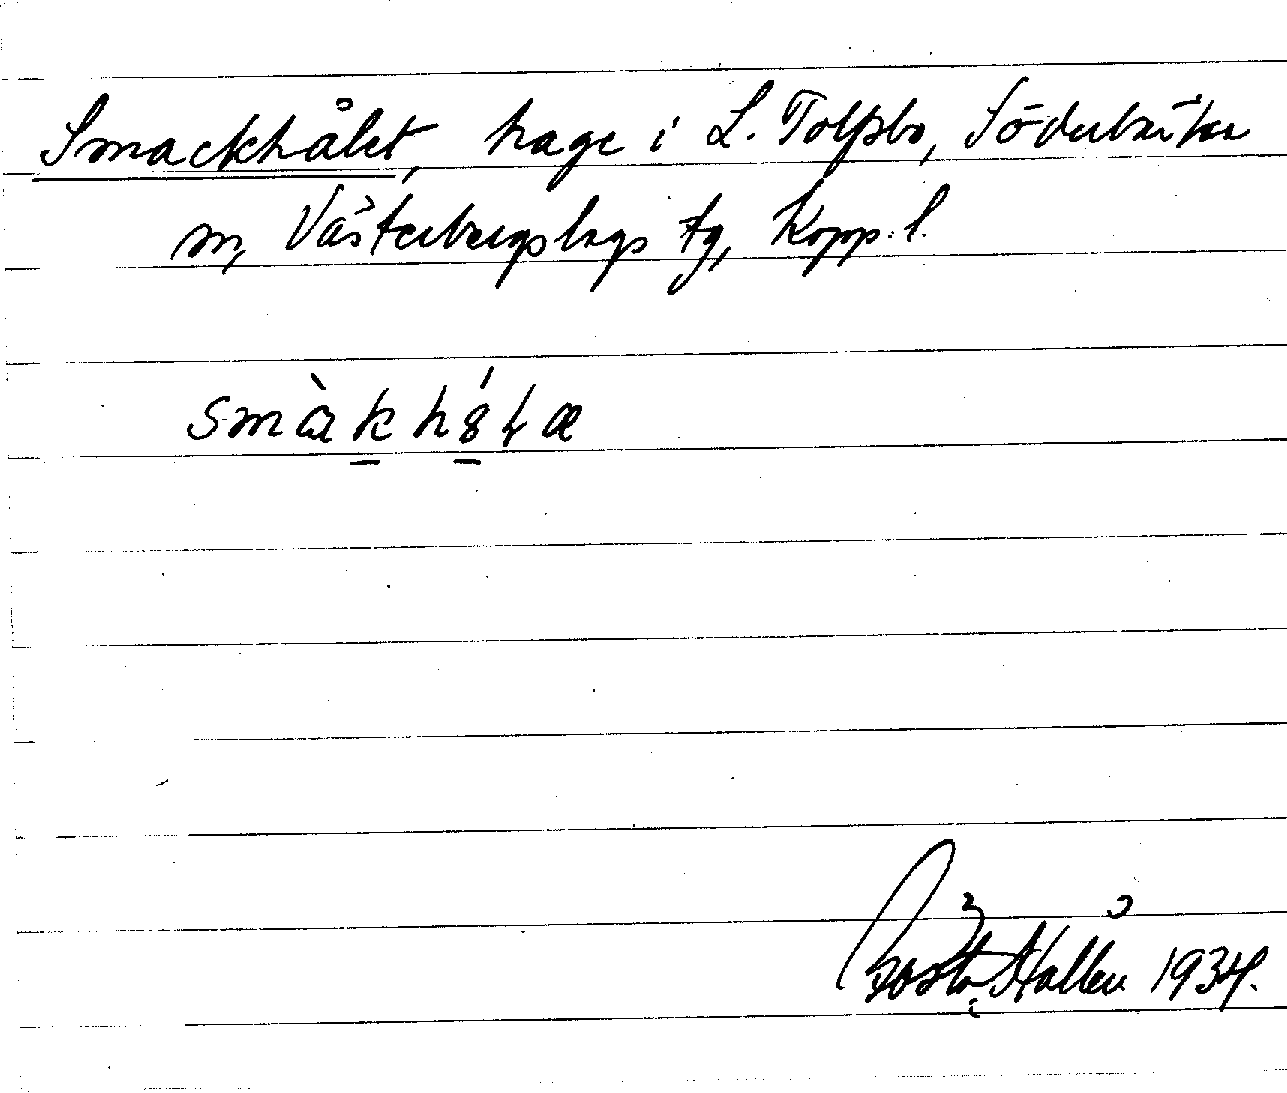 Smackhålet, hage i L. Tolfsbo, Söderbärke
sn, Västerbergslags tg, Kopp. l.
Gösta Hallén 1934.